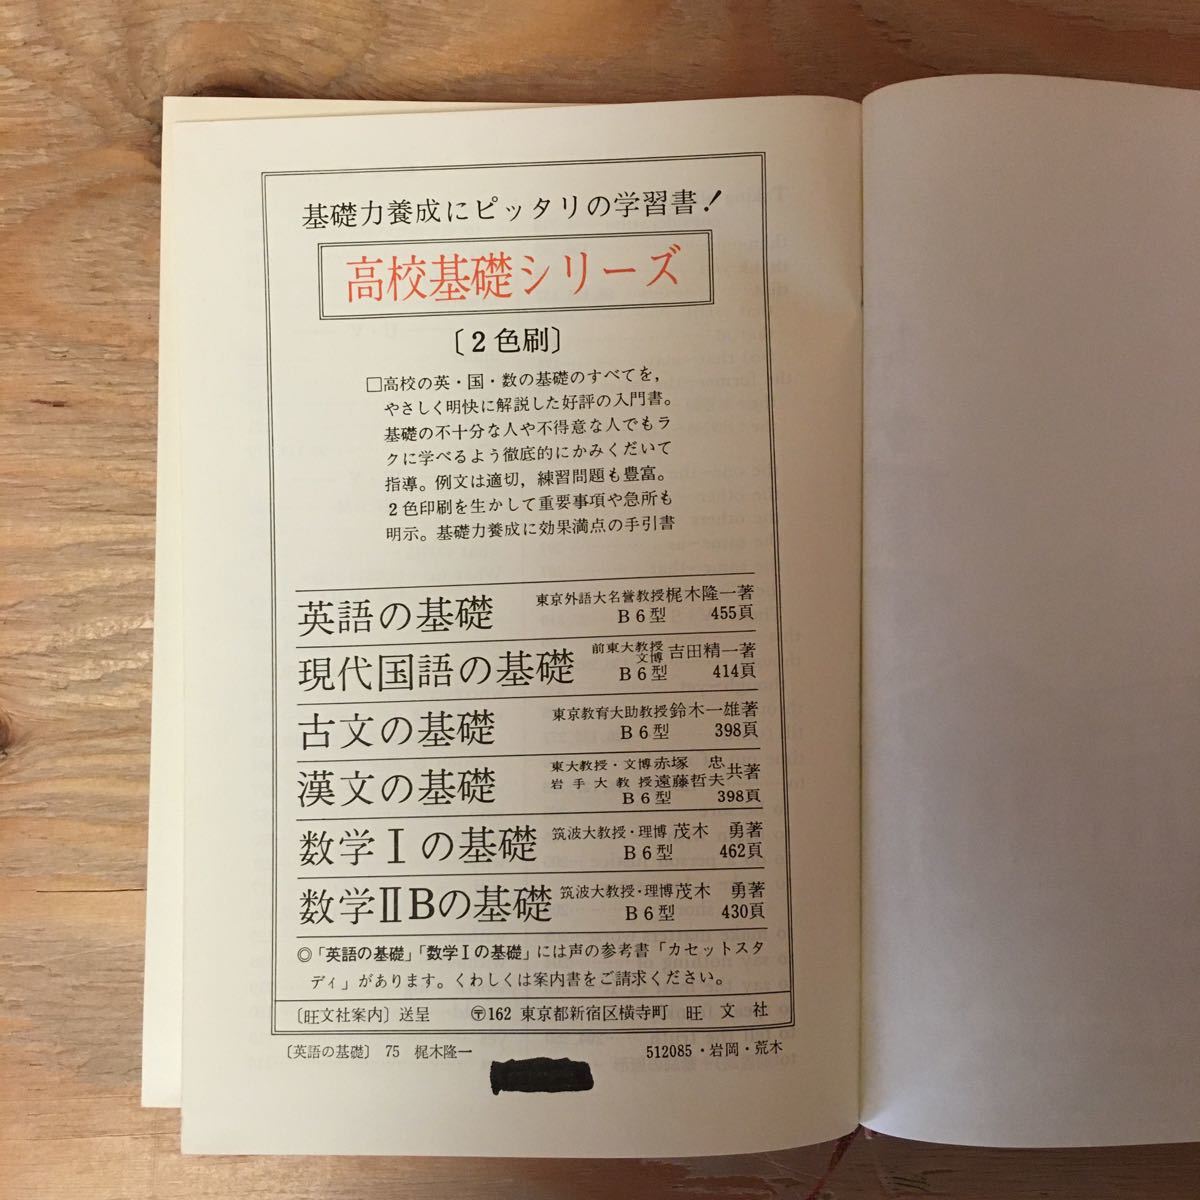 基礎力養成にピッタリの学習書!
高校基礎シリーズ
〔2色刷〕
□高校の英・国・数の基礎のすべてを,
やさしく明快に解説した好評の入門書。
基礎の不十分な人や不得意な人でもラ
クに学べるよう徹底的にかみくだいて
指導。例文は適切,練習問題も豊富。
2色印刷を生かして重要事項や急所も
明示。基礎力養成に効果満点の手引書
英語の基礎 東京外語大名誉教授梶木隆一著
B6型 455頁
現代国語の基礎 前東大教授 文博 吉田精一著
B6型 414頁
古文の基礎 東京教育大助教授鈴木一雄著
B6型 398頁
漢文の基礎 東大教授・文博赤塚 忠
岩手大教授遠藤哲夫 共著
B6型 398頁
数学Iの基礎 筑波大教授・理博 茂木 勇著
B6型 462頁
数学IIBの基礎 筑波大教授・理博茂木 勇著
B6型 430頁
◎「英語の基礎」「数学Iの基礎」には声の参考書「カセットスタ
ディ」があります。くわしくは案内書をご請求ください。
〔旺文社案内〕送呈 〒162 東京都新宿区横寺町 旺文社
〔英語の基礎〕 75 梶木隆一 512085・岩岡・荒木